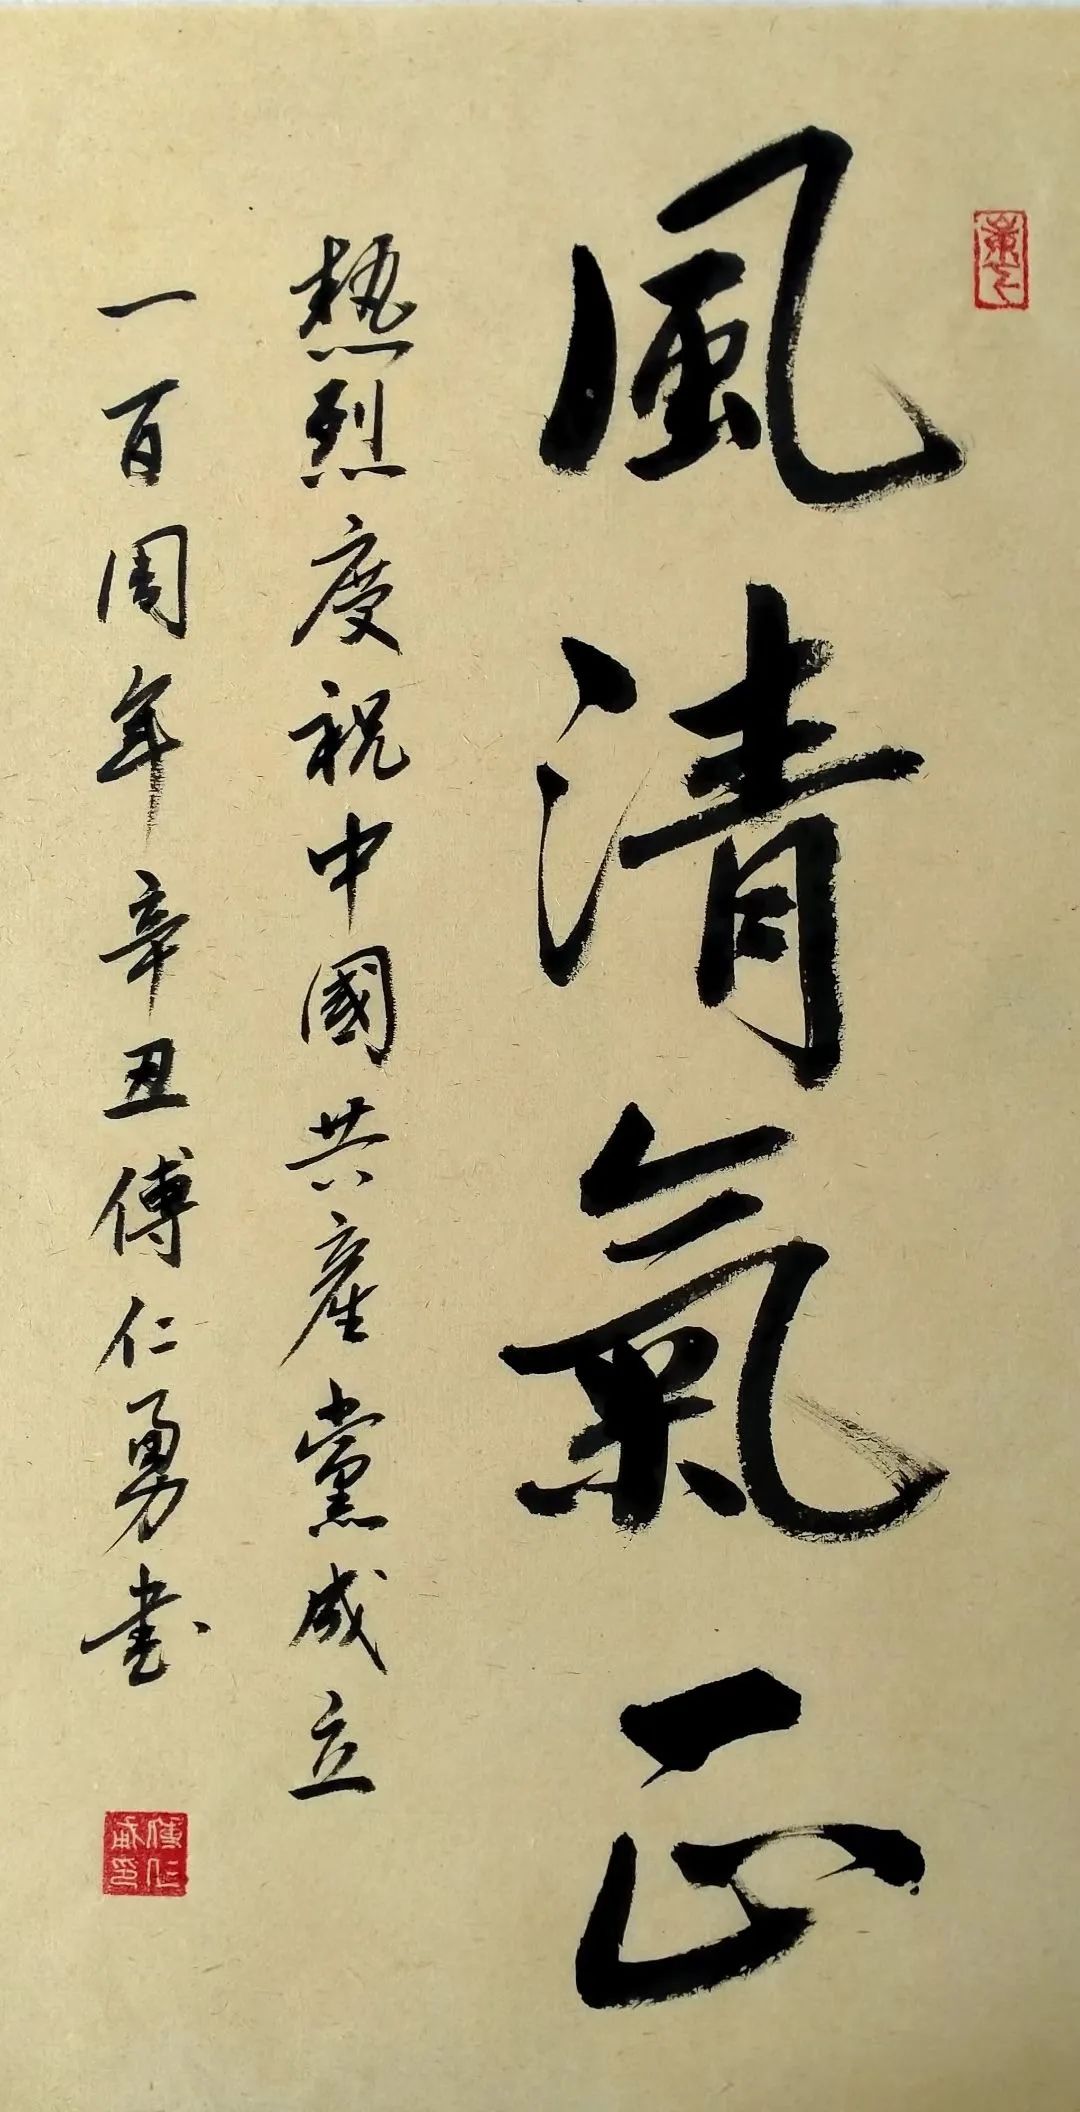 風清氣正
熱烈慶祝中國共產黨成立
一百周年辛丑傅仁勇書
傅仁勇印